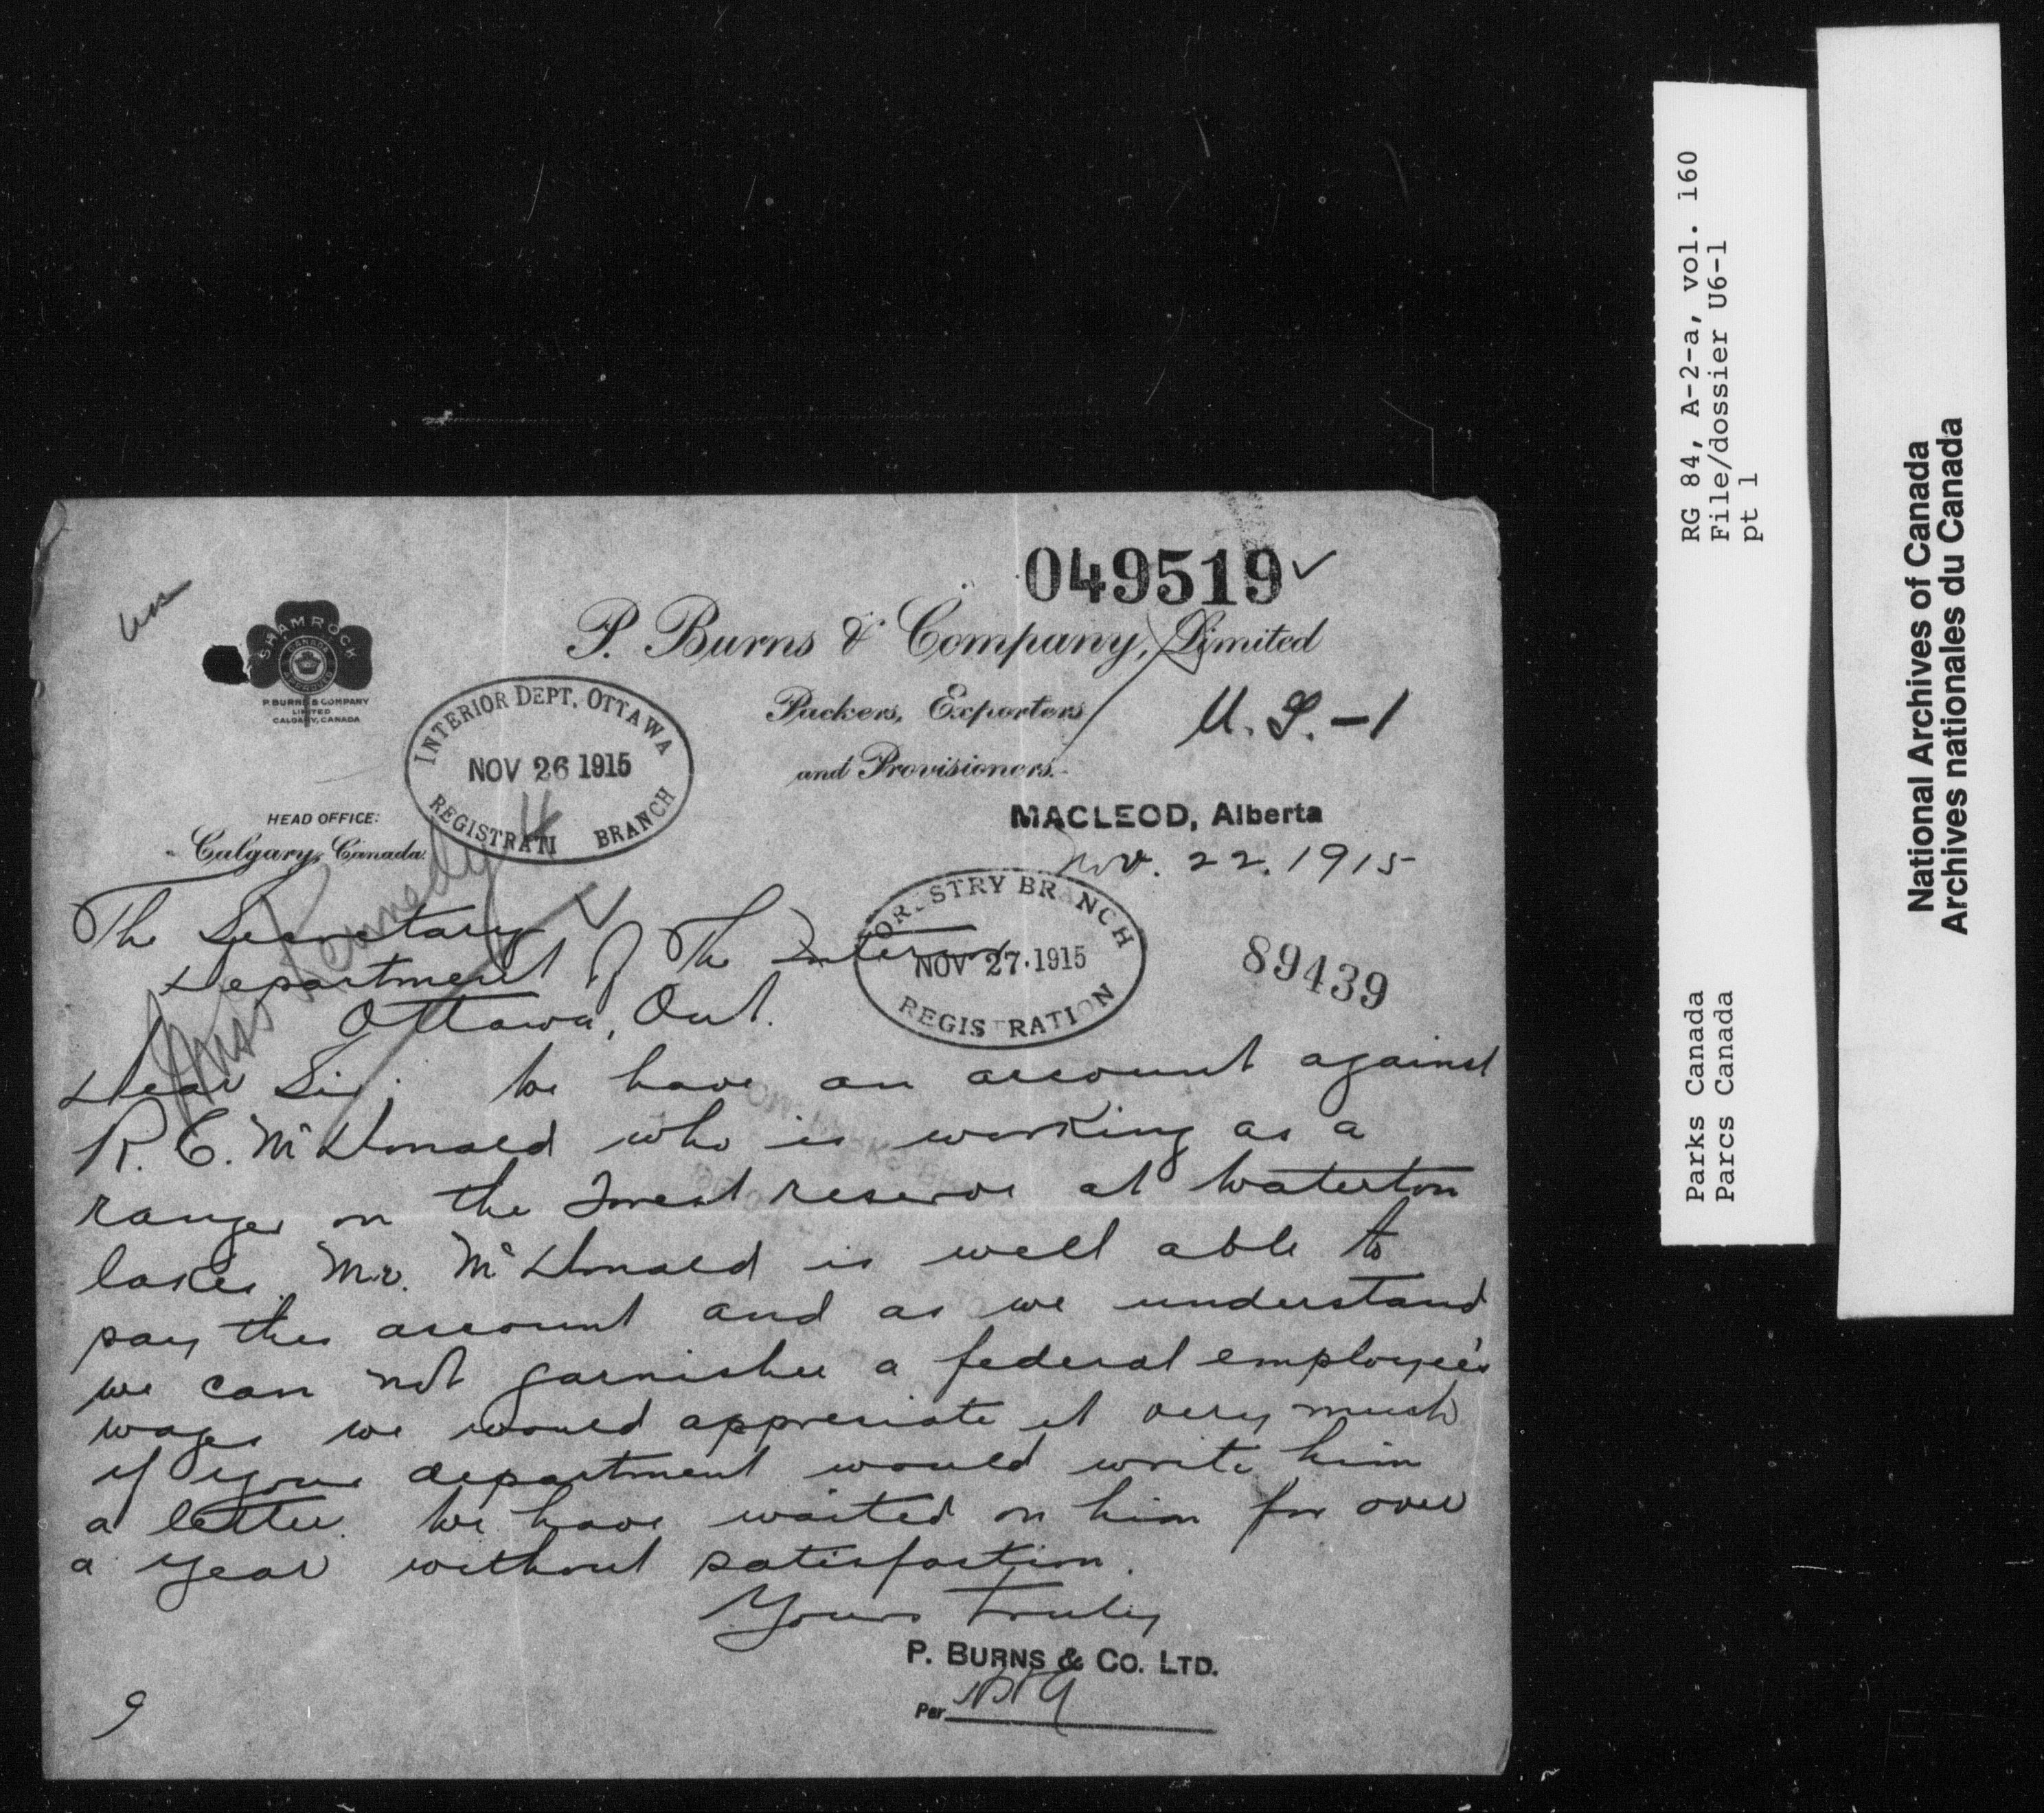 049519
SHAMROCK
P. BURNS & COMPANY
LIMITED
CALGARY, CANADA
P. Burns & Company, Limited
Packers, Exporters
and Provisioners.
U.S.-1
INTERIOR DEPT. OTTAWA
NOV 26 1915
REGISTRATI BRANCH
HEAD OFFICE:
Calgary, Canada.
MACLEOD, Alberta
Nov. 22. 1915
Miss Kennedy
FORESTRY BRANCH
NOV 27 · 1915
REGISTRATION
89439
The Secretary
Department of The Interior
Ottawa, Ont.
Dear Sir; We have an account against
R. C. McDonald who is working as a
ranger on the Forest reserve at Waterton
lakes. Mr. McDonald is well able to
pay this account and as we understand
we can not garnishee a federal employee's
wages we would appreciate it very much
if your department would write him
a letter. We have waited on him for over
a year without satisfaction.
Yours truly
P. BURNS & CO. LTD.
Per
9
RG 84, A-2-a, vol. 160
File/dossier U6-1
pt 1
Parks Canada
Parcs Canada
National Archives of Canada
Archives nationales du Canada